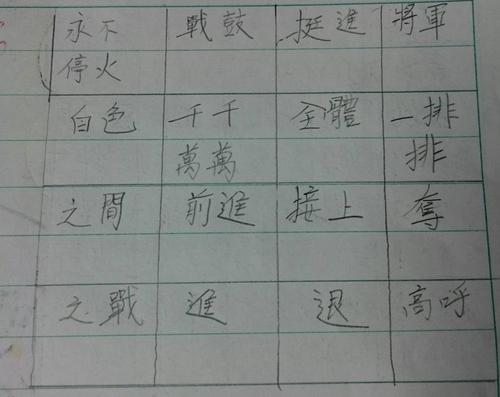 永不 戰鼓 挺進 將軍
停火
白色 千千 全體 一排
萬萬 排
之間 前進 接上 奪
之戰 進 退 高呼